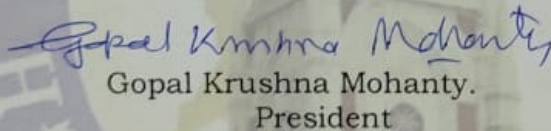 Gopal Krushna Mohanty
Gopal Krushna Mohanty.
President